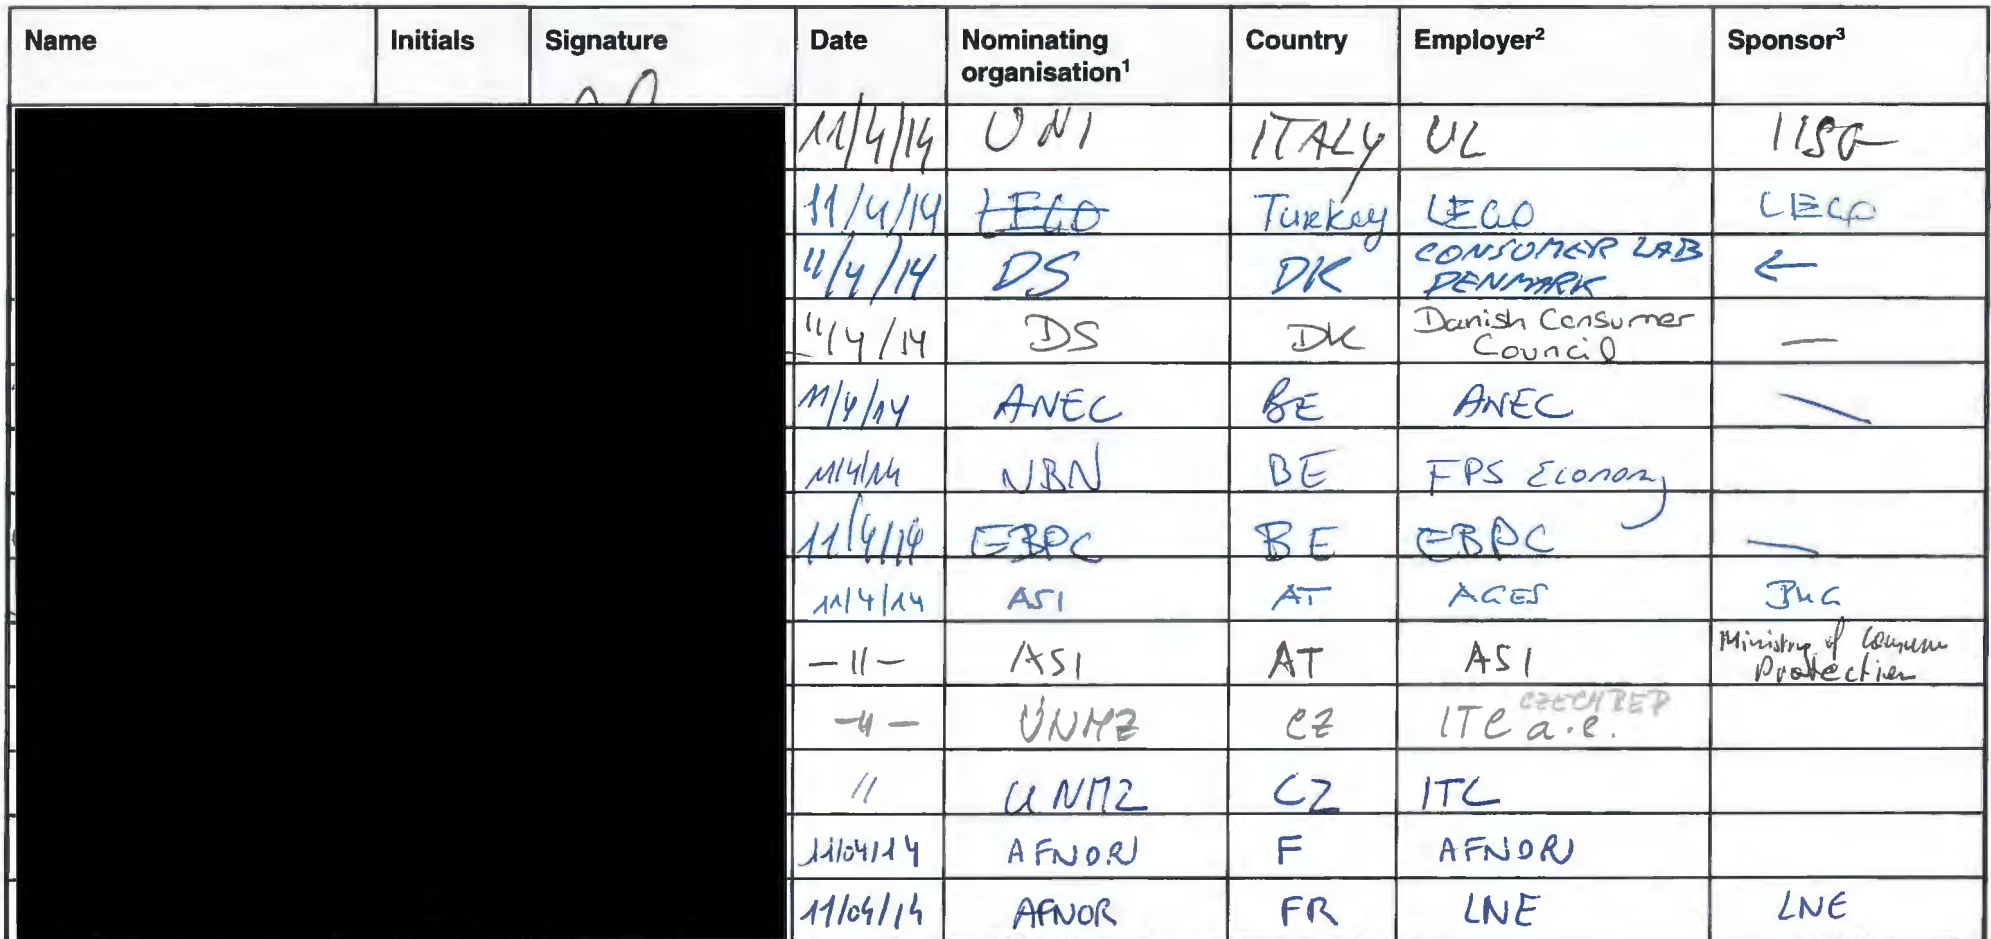 Name Initials Signature Date Nominating organisation¹ Country Employer² Sponsor³
11/4/14 UNI ITALY UL IISG
11/4/14 LEGO Turkey LEGO LEGO
11/4/14 DS DK CONSUMER LAB DENMARK ←
11/4/14 DS DK Danish Consumer Council —
11/4/14 ANEC BE ANEC —
11/4/14 NBN BE FPS Economy
11/4/14 EBPC BE EBPC —
11/4/14 ASI AT AGES BMG
—11— ASI AT ASI Ministry of Protection
—11— ÚNMZ CZ ITC a.c. CZECH REP
11 UNMZ CZ ITC
11/04/14 AFNOR F AFNOR
11/04/14 AFNOR FR LNE LNE